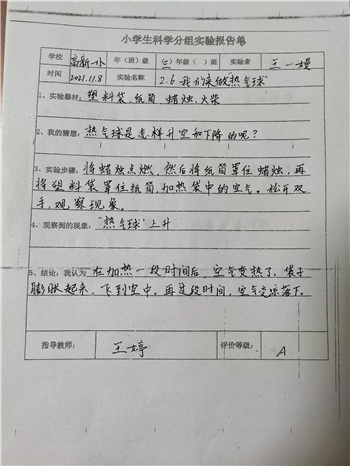 小学生科学分组实验报告单
学校 高新一小 年（班）级 三 年级（ ）班 实验者 王一嫚
时间 2021.11.8 实验名称 2.6 我们来做"热气球"
1、实验器材：塑料袋、纸筒、蜡烛、火柴
2、我的猜想：热气球是怎样升空和下降的呢？
3、实验步骤：将蜡烛点燃，然后将纸筒罩住蜡烛，再
将塑料袋罩住纸筒，加热袋中的空气。松开双
手，观察现象。
4、观察到的现象："热气球"上升
5、结论：我认为 在加热一段时间后，空气变热了，袋子
膨胀起来，飞到空中，再过段时间，空气变凉落下。
指导教师： 王婷 评价等级： A